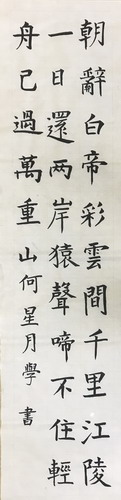 朝辭白帝彩雲間千里江陵
一日還两岸猿聲啼不住輕
舟已過萬重山何星月學書